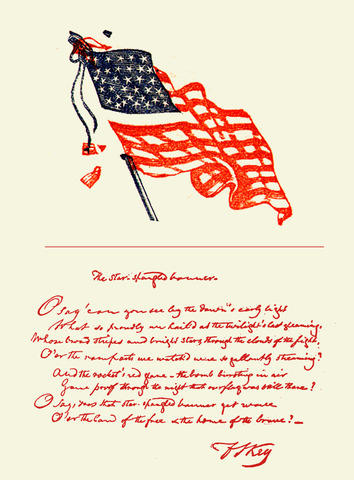 The star-spangled banner.
O say! can you see by the dawn's early light
What so proudly we hail'd at the twilight's last gleaming,
Whose broad stripes and bright stars through the clouds of the fight,
O'er the ramparts we watched were so gallantly streaming?
And the rocket's red glare – the bomb bursting in air
Gave proof through the night that our flag was still there?
O say, does that star-spangled banner yet wave
O'er the land of the free & the home of the brave? –
F S Key